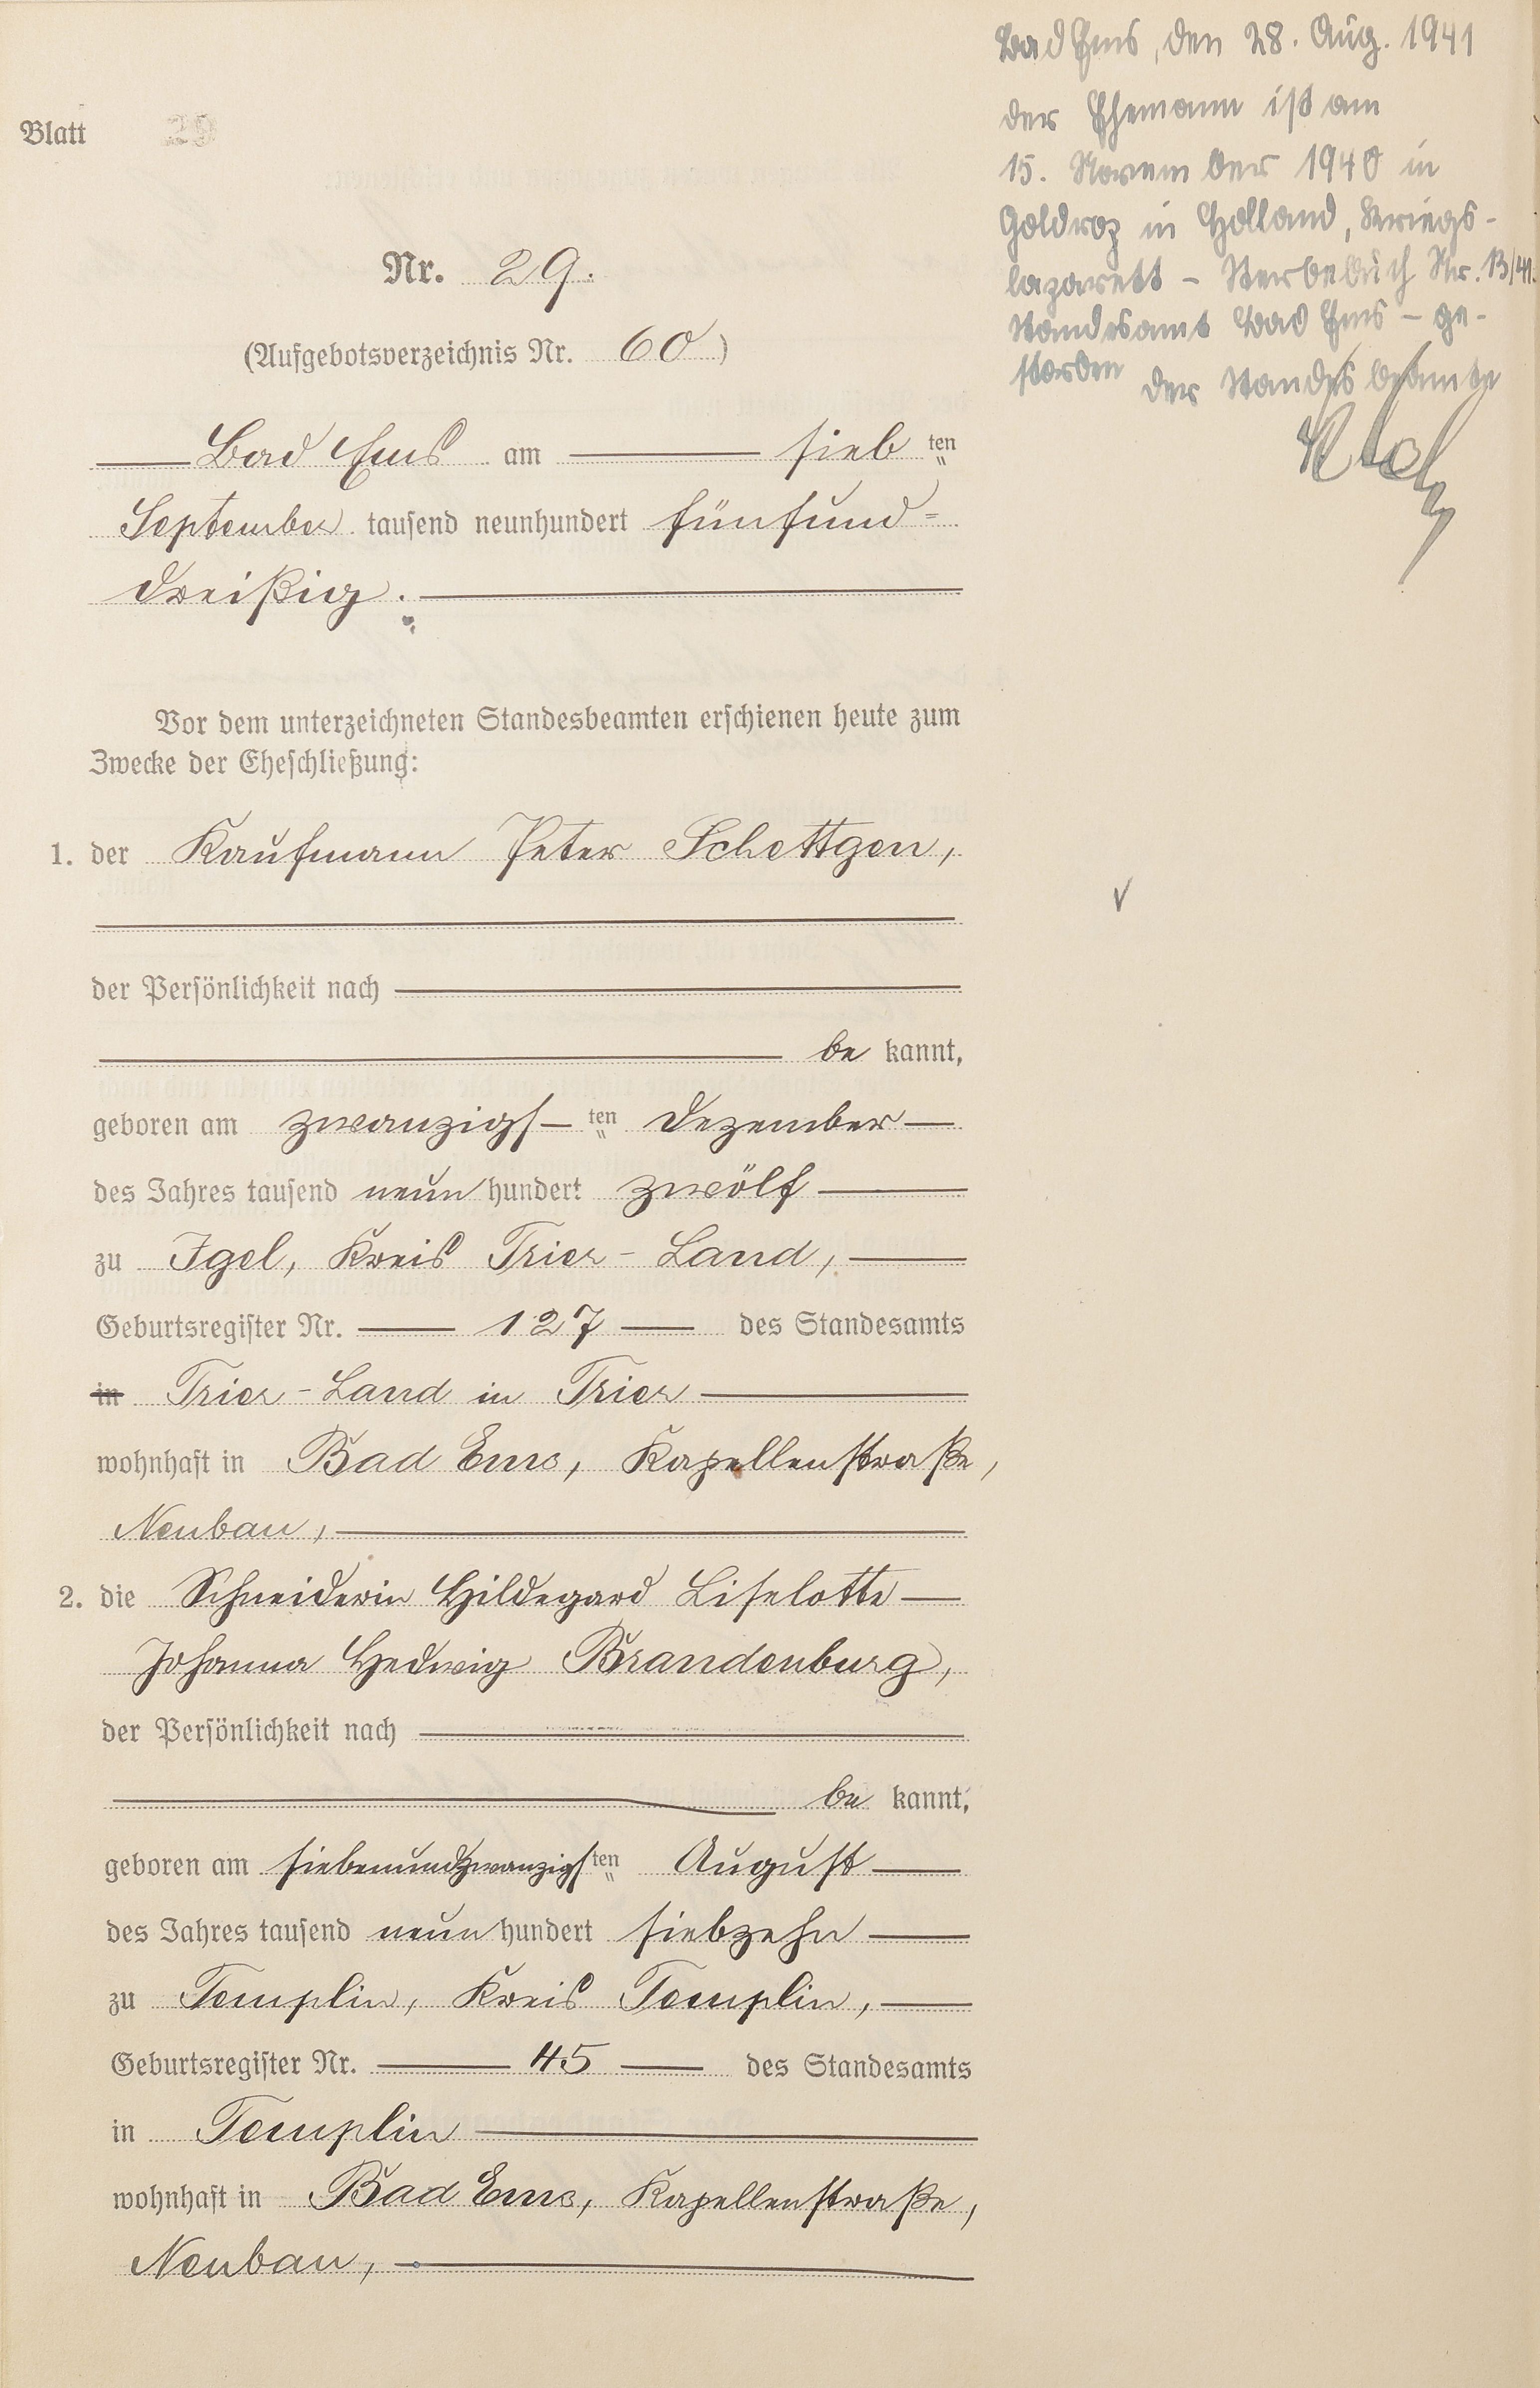 Blatt 29
Nr. 29.
(Aufgebotsverzeichnis Nr. 60)
Bad Ems am sieb ten
September tausend neunhundert fünfund=
dreißig.
Vor dem unterzeichneten Standesbeamten erschienen heute zum
Zwecke der Eheschließung:
1. der Kaufmann Peter Schettgen,
der Persönlichkeit nach
be kannt,
geboren am zwanzigs ten Dezember
des Jahres tausend neun hundert zwölf
zu Igel, Kreis Trier-Land,
Geburtsregister Nr. 127 des Standesamts
in Trier-Land in Trier
wohnhaft in Bad Ems, Kapellenstraße,
Neubau,
2. die Schneiderin Hildegard Liselotte
Johanna Hedwig Brandenburg,
der Persönlichkeit nach
be kannt,
geboren am siebenundzwanzigs ten August
des Jahres tausend neun hundert siebzehn
zu Templin, Kreis Templin,
Geburtsregister Nr. 45 des Standesamts
in Templin
wohnhaft in Bad Ems, Kapellenstraße,
Neubau,
Bad Ems, den 28. Aug. 1941
der Ehemann ist am
15. November 1940 in
in Holland, Kriegs-
lazarett – Sterbebuch Nr. 13/41.
Standesamt Bad Ems – ge-
storben
Der Standesbeamte